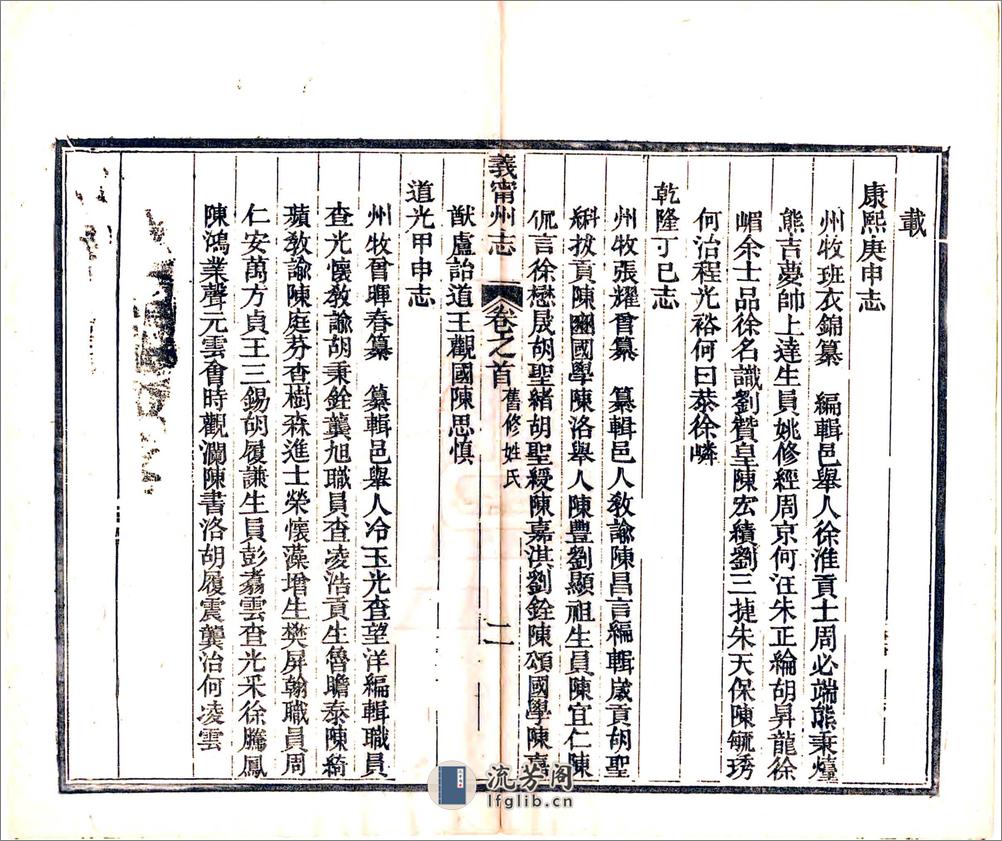 載
康熙庚申志
州牧班衣錦纂　編輯邑舉人徐淮貢士周必端熊秉燑
熊吉夢帥上達生員姚修經周京何汪朱正綸胡昇龍徐
嵋余士品徐名識劉贊皇陳宏績劉三捷朱天保陳毓琇
何治程光裕何曰㳟徐嶙
乾隆丁巳志
州牧張耀曾纂　纂輯邑人敎諭陳昌言編輯歲貢胡聖
斟拔貢陳豳國學陳洛舉人陳豐劉顯祖生員陳宜仁陳
侃言徐懋晟胡聖緒胡聖綬陳嘉淇劉銓陳頌國學陳嘉
猷盧詒道王觀國陳思慎
義甯州志　卷之首　舊修姓氏　二
道光甲申志
州牧曾暉春纂　纂輯邑舉人冷玉光查望洋編輯職員
查光懷敎諭胡秉銓龔旭職員查凌浩貢生魯瞻泰陳綺
蘋敎諭陳庭芬查樹森進士榮懷藻增生樊屏翰職員周
仁安萬方貞王三錫胡履謙生員彭翥雲查光釆徐騰鳳
陳鴻業聲元雲會時觀瀾陳書洛胡履震龔治何凌雲
流芳阁
lfglib.cn